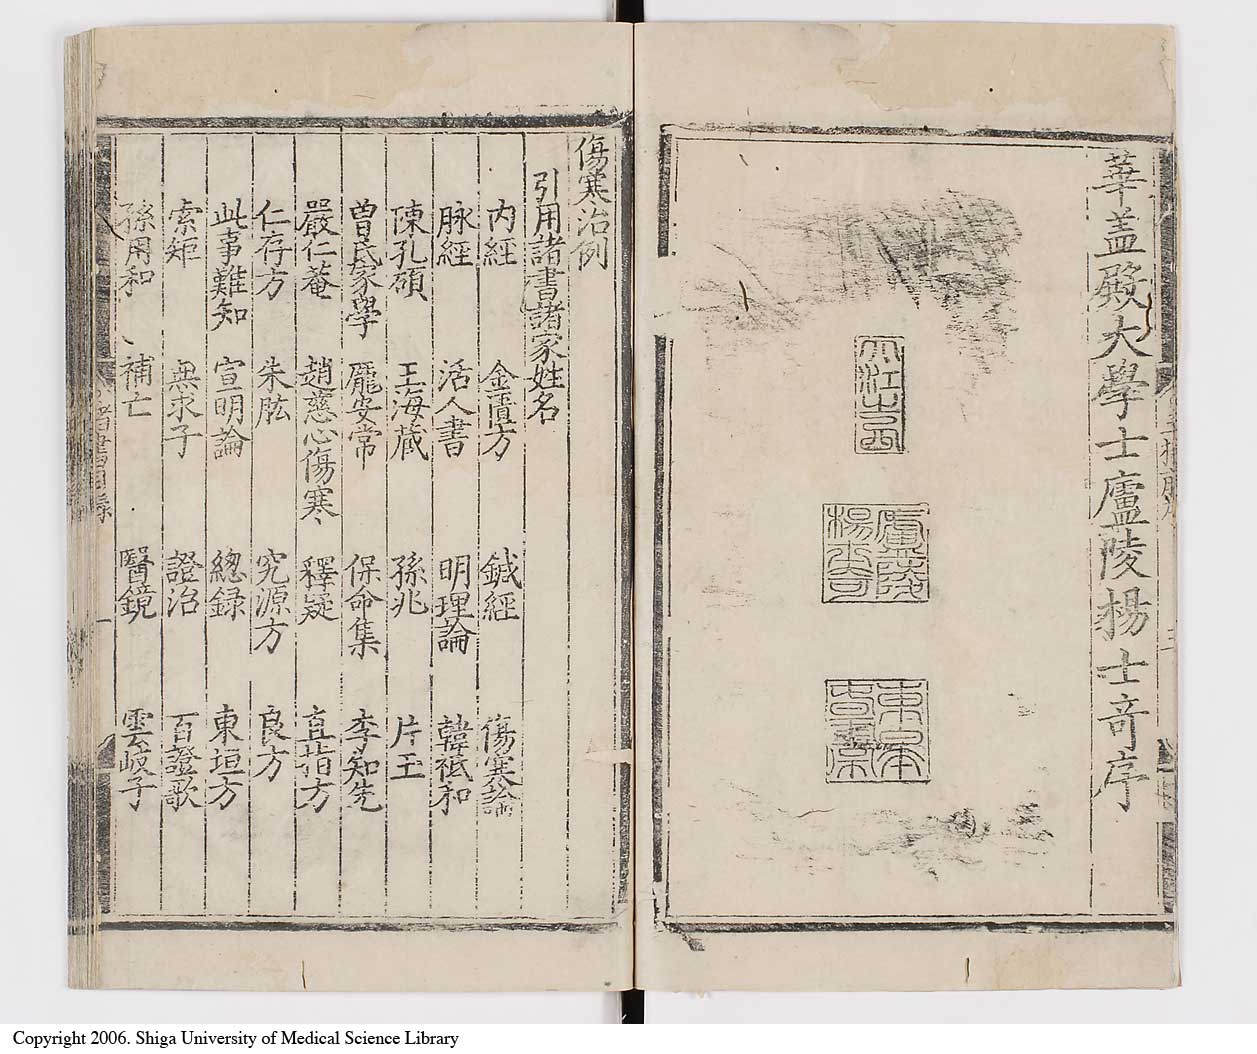 華盖殿大學士廬陵楊士奇序
大江之西
廬陵
楊士奇
傷寒治例
引用諸書諸家姓名
内經 金匱方 鍼經 傷寒論
脉經 活人書 明理論 韓祗和
陳孔碩 王海藏 孫兆 片玉
曾氏家學 龐安常 保命集 李知先
嚴仁菴 趙慈心傷寒 釋疑 直指方
仁存方 朱肱 究源方 良方
此事難知 宣明論 總録 東垣方
索矩 無求子 證治 百證歌
孫用和 補亡 醫鏡 雲岐子
諸書目録
Copyright 2006. Shiga University of Medical Science Library